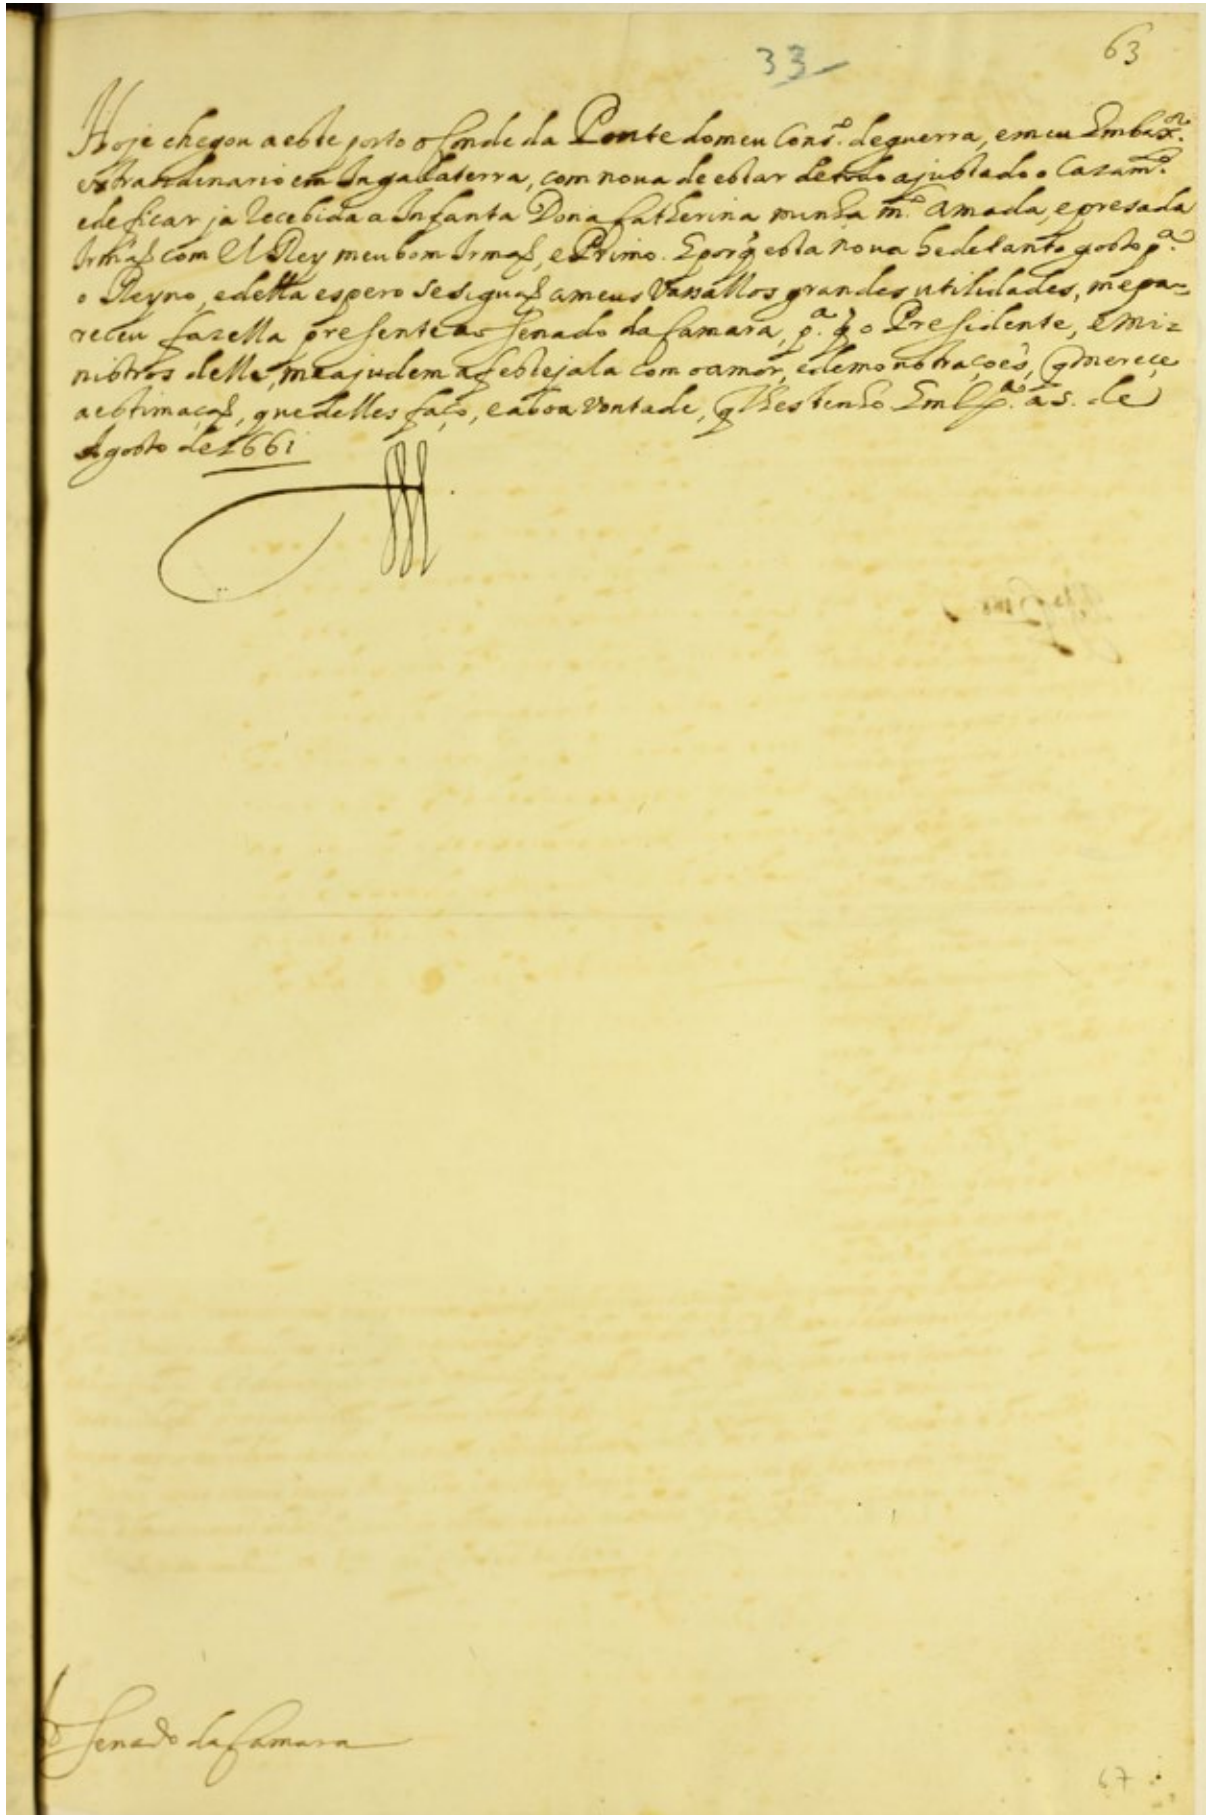 33
63
Hoje chegou a este porto o Conde da Ponte do meu Cons.º de guerra, e meu Embax.ºʳ
extraordinario em Ingallaterra, com noua de estar de todo ajustado o Cazam.ᵗᵒ
e de ficar ja recebida a Infanta Dona Catherina minha m.ᵗᵒ amada, e presada
Irmãa com El Rey meu bom Irmaõ, e Primo. E porq̃ esta noua he de tanto gosto p.ª
o Reyno, e della espero se siguaõ a meus Vassallos grandes utilidades, me pa=
receu fazella presente ao Senado da Camara, p.ª q̃ o Presidente, e mi=
nistros delle, me ajudem a festejala com o amor, e demonstrações, q̃ merece
a estimaçaõ, que delles faço, e a boa vontade, q̃ lhes tenho Em Lx.ª a 5. de
Agosto de 1661
Senado da Camara
67